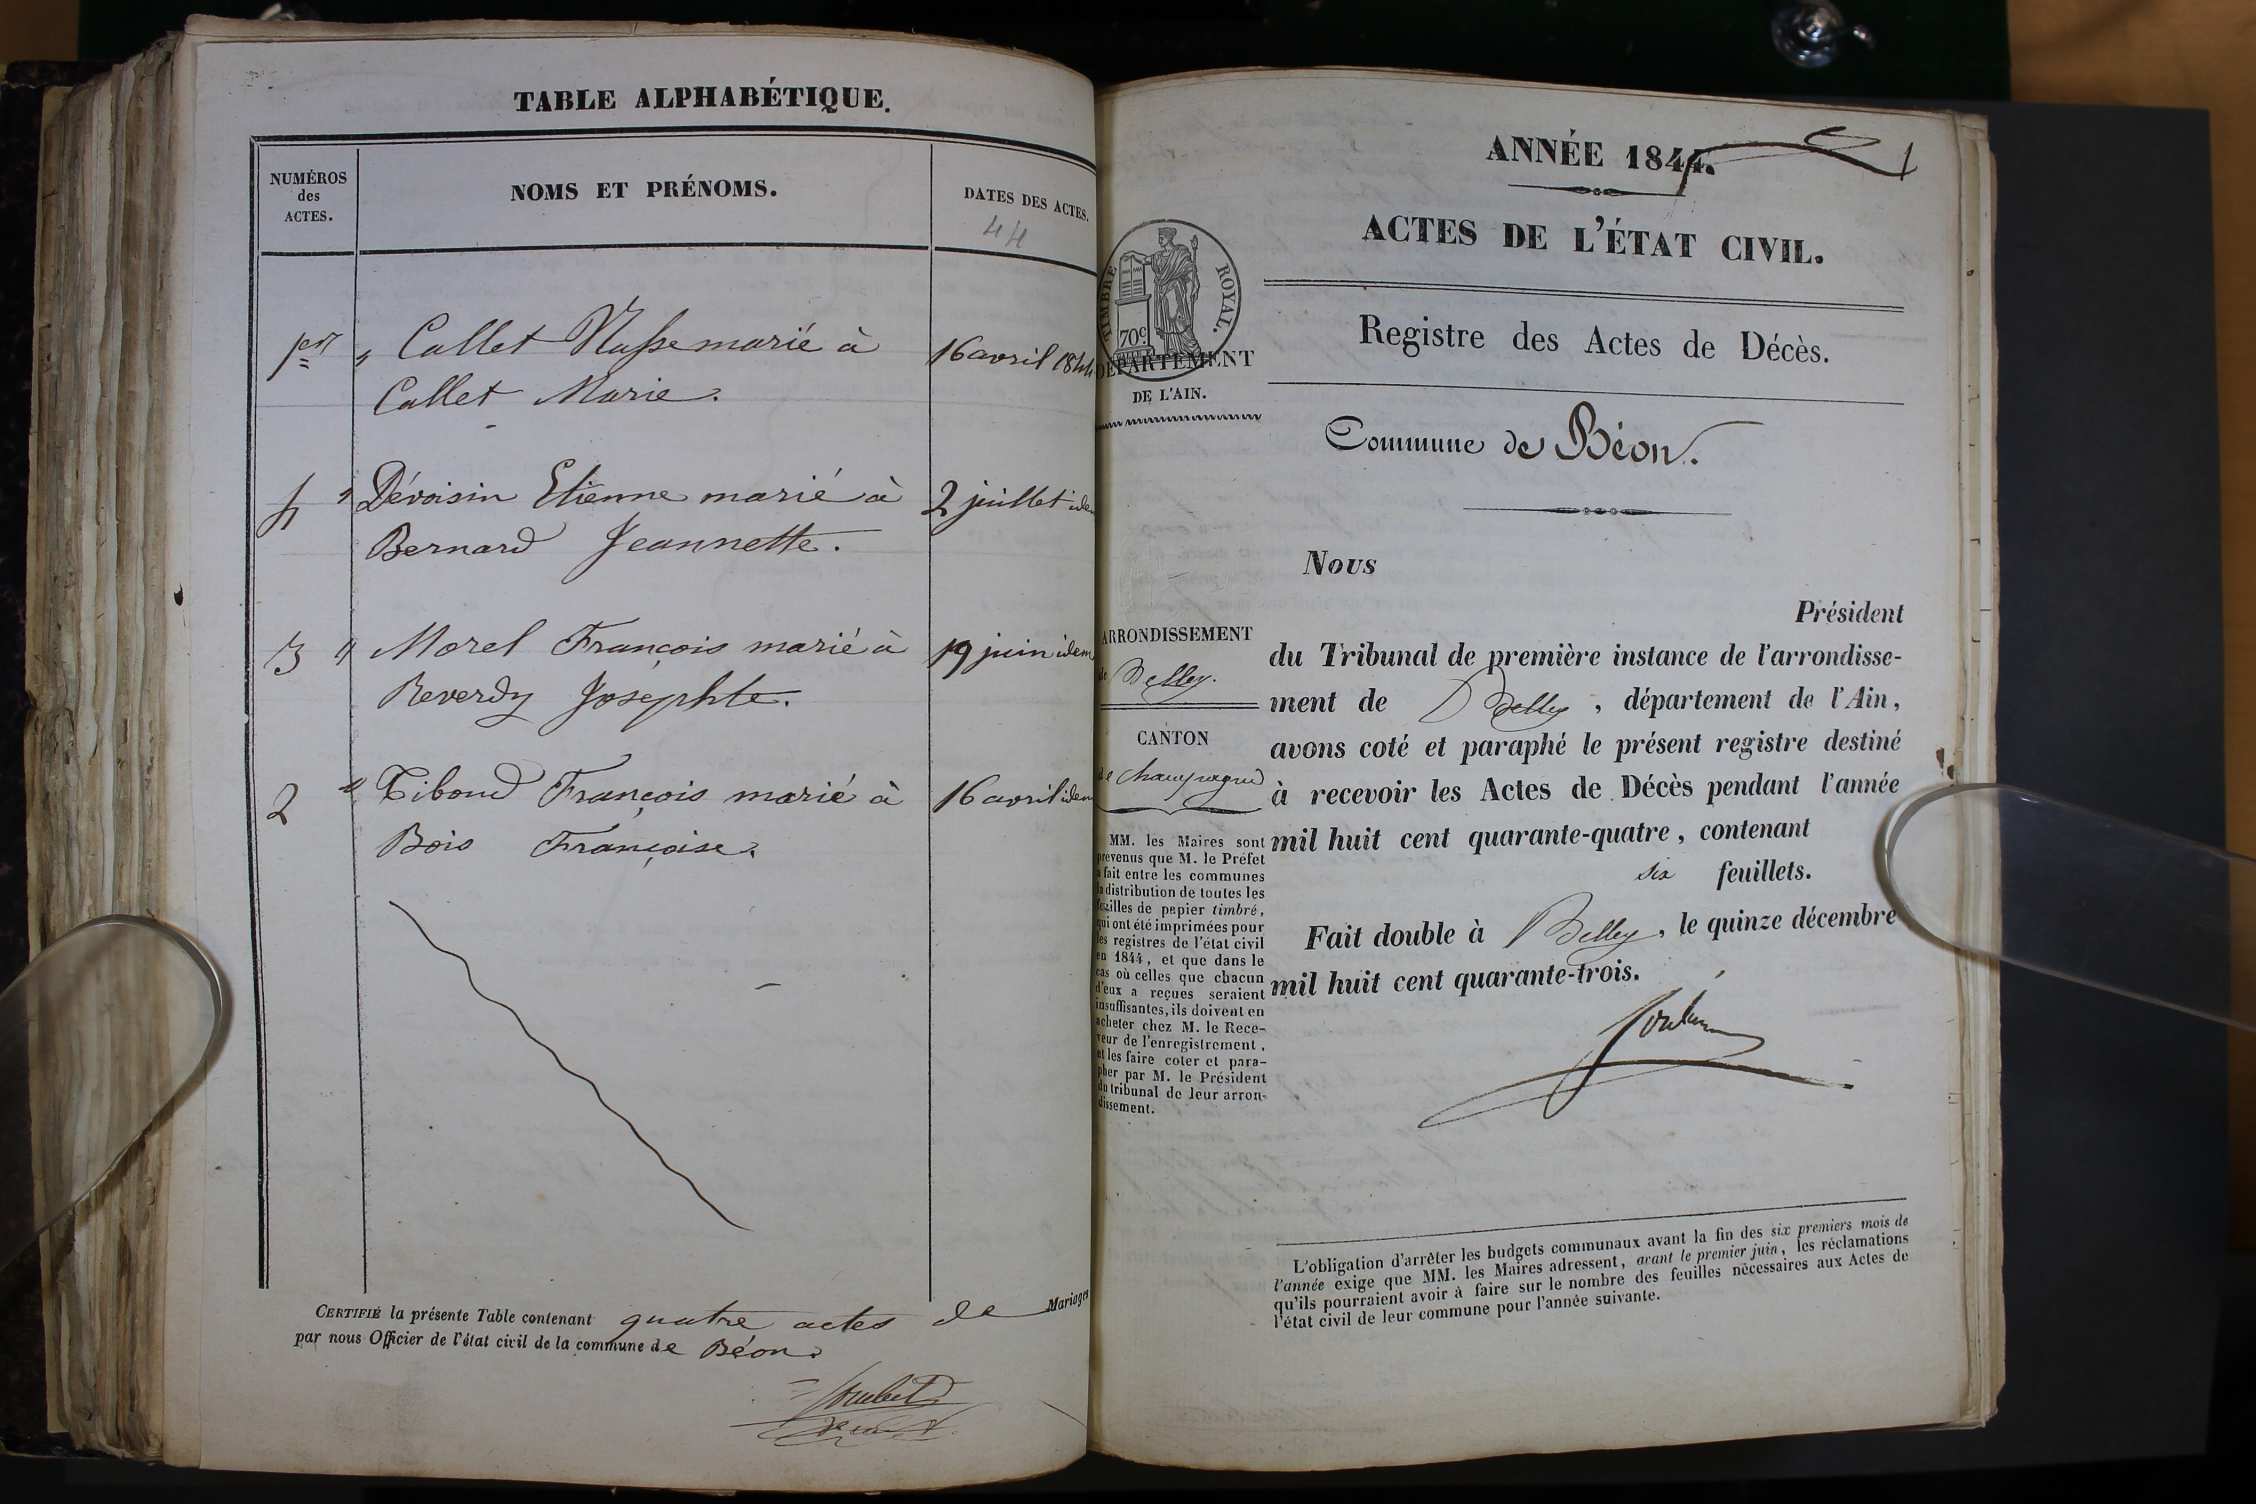 TABLE ALPHABÉTIQUE.
NUMÉROS
des
ACTES.
NOMS ET PRÉNOMS.
DATES DES ACTES.
44
1er " Callet marié à 16 avril 1844
Callet Marie.
4 " Dévoisin Etienne marié à 2 juillet idem
Bernard Jeannette.
3 " Morel François marié à 19 juin idem
Reverdy Josephte.
2 " Tiboud François marié à 16 avril idem
Bois Françoise.
CERTIFIÉ la présente Table contenant quatre actes de Mariages
par nous Officier de l'état civil de la commune de Béon.
ANNÉE 1844.
1
ACTES DE L'ÉTAT CIVIL.
TIMBRE ROYAL.
70c.
DÉPARTEMENT
DE L'AIN.
Registre des Actes de Décès.
Commune de Béon.
ARRONDISSEMENT
de Belley.
CANTON
de Champagne
MM. les Maires sont
prévenus que M. le Préfet
a fait entre les communes
la distribution de toutes les
feuilles de papier timbré,
qui ont été imprimées pour
les registres de l'état civil
en 1844, et que dans le
cas où celles que chacun
d'eux a reçues seraient
insuffisantes, ils doivent en
acheter chez M. le Rece-
veur de l'enregistrement,
et les faire coter et para-
pher par M. le Président
du tribunal de leur arron-
dissement.
Nous
Président
du Tribunal de première instance de l'arrondisse-
ment de Belley, département de l'Ain,
avons coté et paraphé le présent registre destiné
à recevoir les Actes de Décès pendant l'année
mil huit cent quarante-quatre, contenant
six feuillets.
Fait double à Belley, le quinze décembre
mil huit cent quarante-trois.
L'obligation d'arrêter les budgets communaux avant la fin des six premiers mois de
l'année exige que MM. les Maires adressent, avant le premier juin, les réclamations
qu'ils pourraient avoir à faire sur le nombre des feuilles nécessaires aux Actes de
l'état civil de leur commune pour l'année suivante.